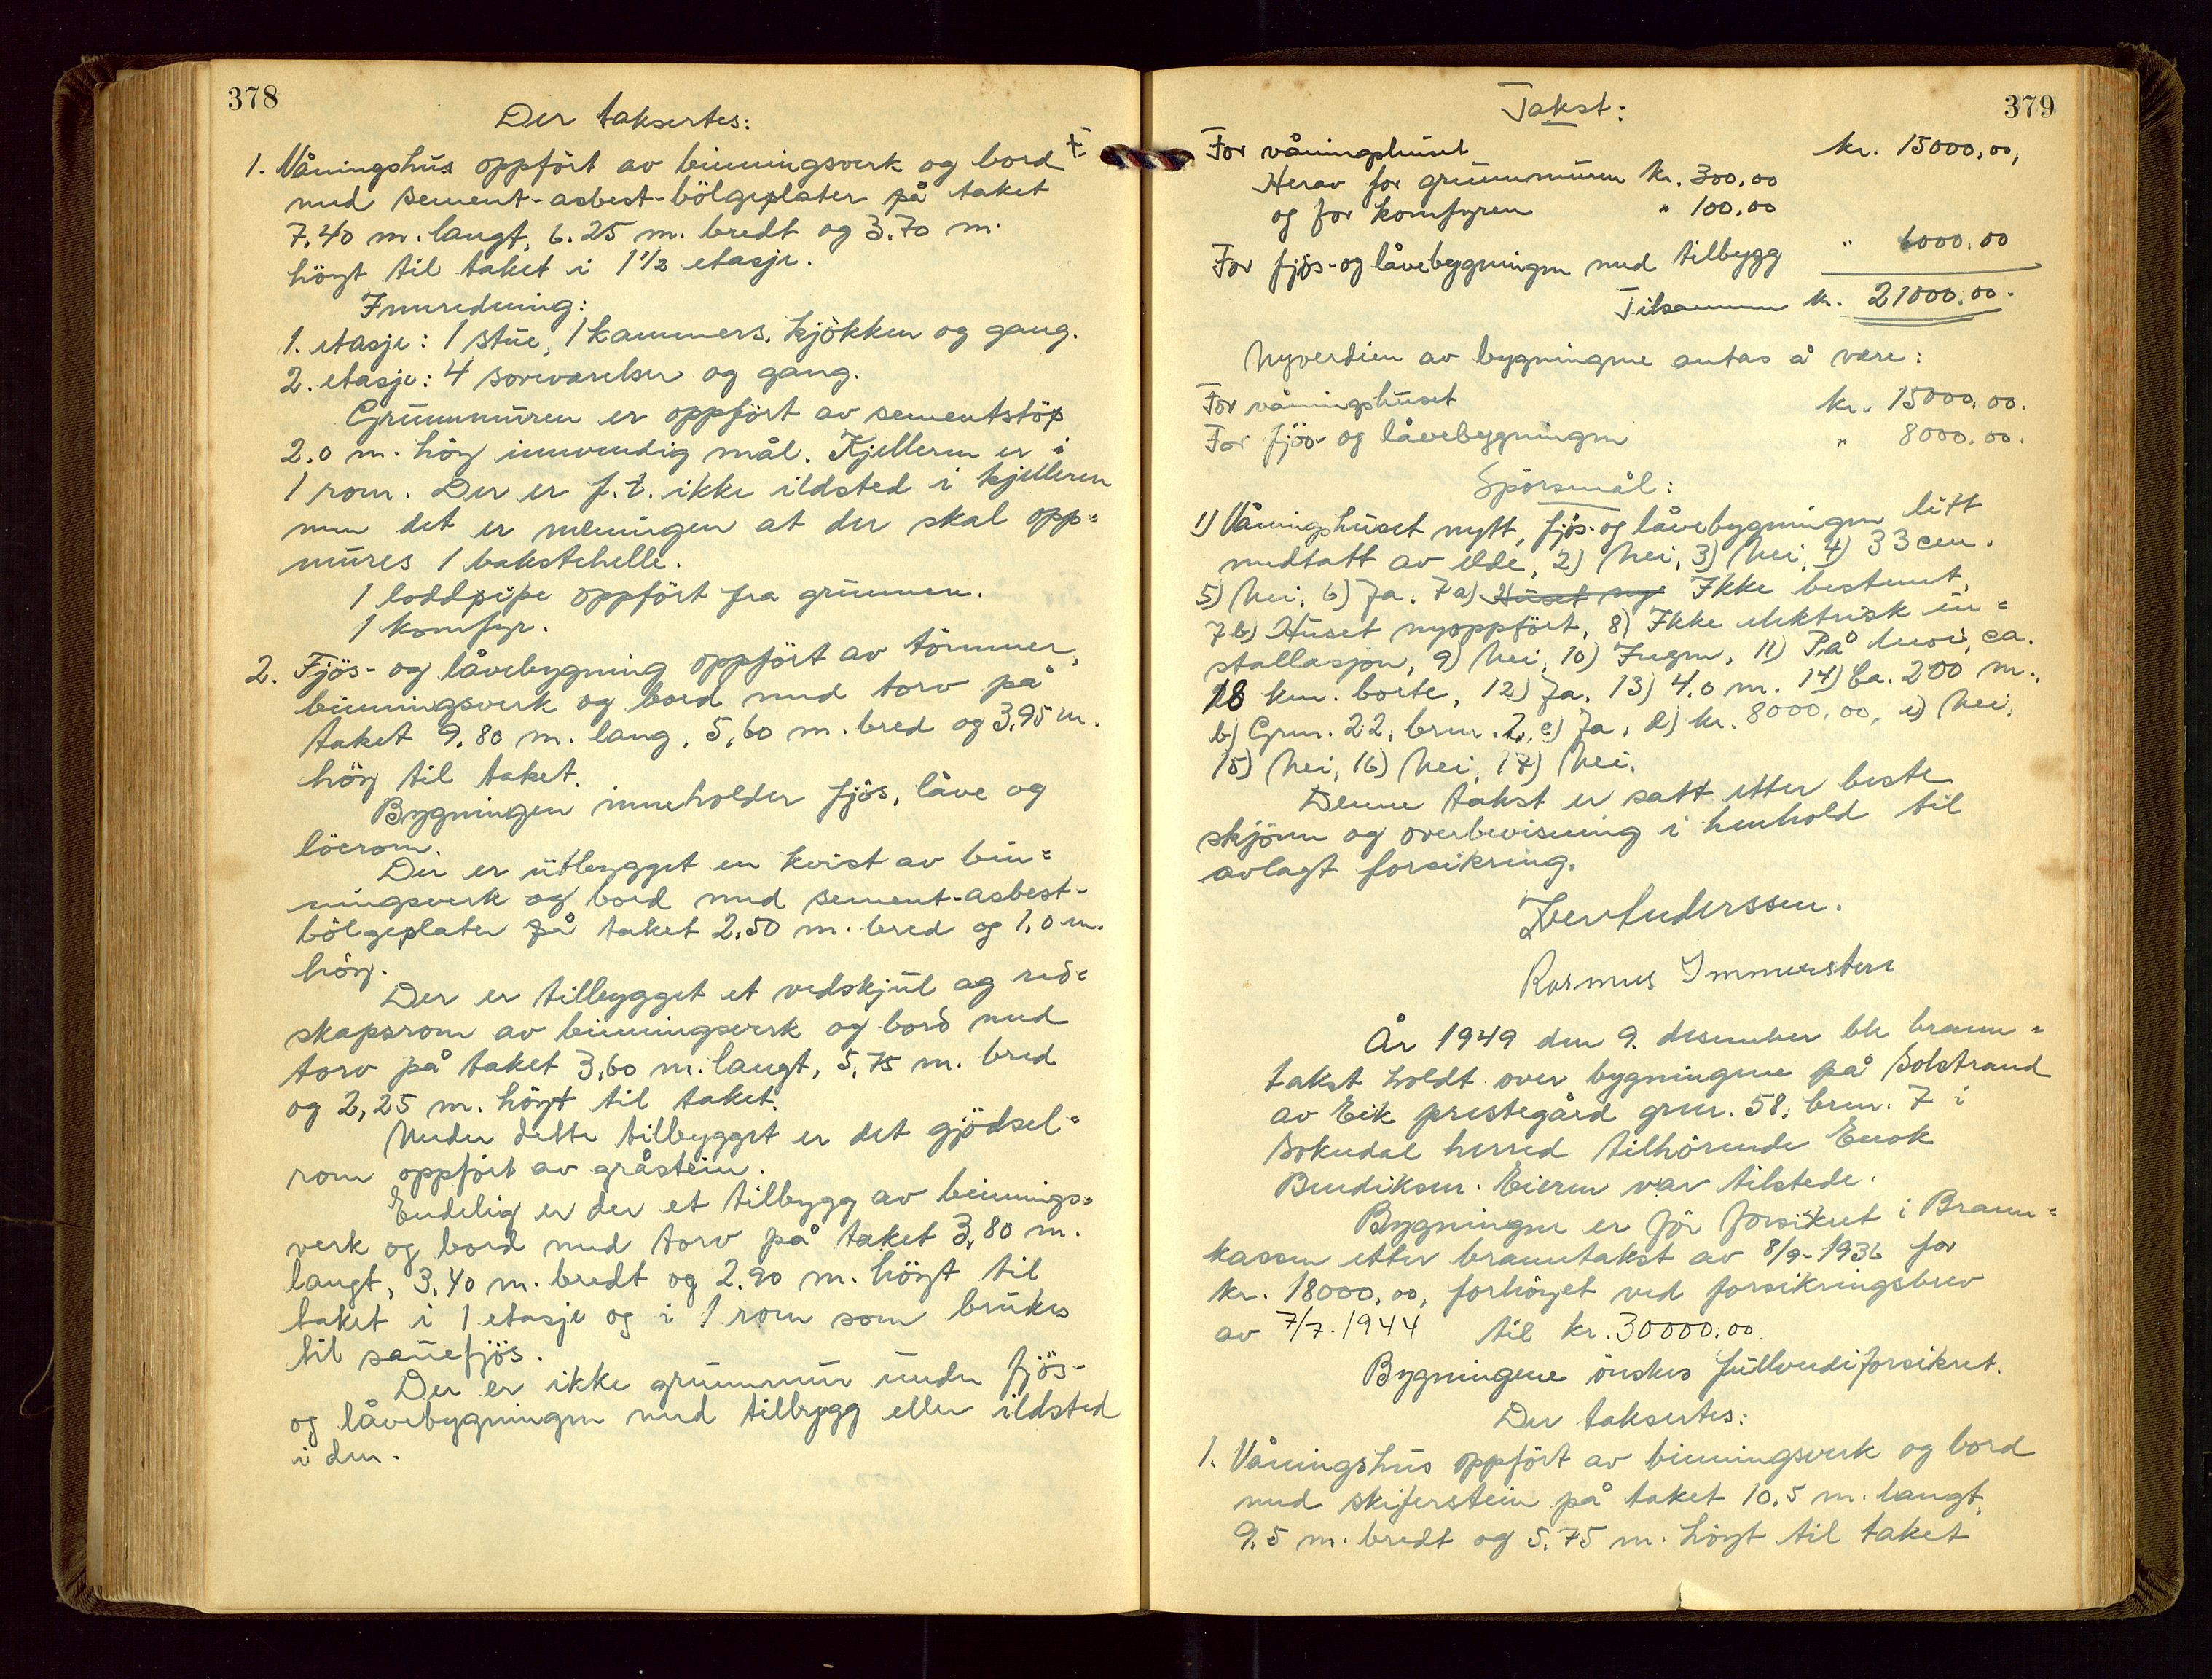 378
Der taksertes:
1. Våningshus oppfört av binningsverk og bord
med sement-asbest-bölgeplater på taket
7,40 m. langt, 6.25 m. bredt og 3,70 m.
höyt til taket i 1 1/2 etasje.
Innredning:
1. etasje: 1 stue, 1 kammers, kjökken og gang.
2. etasje: 4 soveværelser og gang.
Grunnmuren er oppfört av sementstöp
2,0 m. höy innvendig mål. Kjelleren er i
1 rom. Der er f.t. ikke ildsted i kjelleren
men det er meningen at der skal opp=
mures 1 bakstehelle.
1 loddpipe oppfört fra grunnen.
1 komfyr.
2. Fjös- og låvebygning oppfört av tömmer,
binningsverk og bord med torv på
taket 9,80 m. lang, 5,60 m. bred og 3,95 m.
höy til taket.
Bygningen inneholder fjös, låve og
löerom.
Der er utbygget en kvist av bin=
ningsverk og bord med sement-asbest-
bölgeplater på taket 2,50 m. bred og 1,0 m.
höy.
Der er tilbygget et vedskjul og red=
skapsrom av binningsverk og bord med
torv på taket 3,60 m. langt, 5,75 m. bred
og 2,25 m. höyt til taket.
Under dette tilbygget er det gjödsel=
rom oppfört av gråstein.
Endelig er der et tilbygg av binnings=
verk og bord med torv på taket 3,80 m.
langt, 3,40 m. bredt og 2.90 m. höyt til
taket i 1 etasje og i 1 rom som brukes
til sauefjös.
Der er ikke grunnmur under fjös-
og låvebygningen med tilbygg eller ildsted
i den.
379
Takst:
For våningshuset kr. 15000,00,
Herav for grunnmuren kr. 300,00
og for komfyren " 100,00
For fjös- og låvebygningen med tilbygg " 6000,00
Tilsammen kr. 21000,00.
Nyverdien av bygningene antas å være:
For våningshuset kr. 15000,00.
For fjös- og låvebygningen " 8000,00.
Spörsmål:
1) Våningshuset nytt, fjös- og låvebygningen litt
medtatt av elde, 2) Nei, 3) Nei, 4) 33 cm.
5) Nei, 6) Ja, 7a) Huset ny Ikke bestemt,
7b) Huset nyoppfört, 8) Ikke elektrisk in=
stallasjon, 9) Nei, 10) Ingen, 11) På Moi, ca.
18 km. borte, 12) Ja, 13) 4,0 m. 14) Ca. 200 m.,
b) Grnr. 22, brnr. 2, c) Ja, d) kr. 8000,00, e) Nei,
15) Nei, 16) Nei, 17) Nei.
Denne takst er satt etter beste
skjönn og overbevisning i henhold til
avlagt forsikring.
Iver Anderssen.
Rasmus Immerstein
År 1949 den 9. desember ble brann=
takst holdt over bygningene på Solstrand
av Eik prestegård grnr. 58, brnr. 7 i
Sokndal herred tilhörende Enok
Bendiksen. Eieren var tilstede.
Bygningene er för forsikret i Brann=
kassen etter branntakst av 8/9-1936 for
kr. 18000,00, forhöyet ved forsikringsbrev
av 7/7.1944 til kr. 30000,00.
Bygningene önskes fullverdiforsikret.
Der taksertes:
1. Våningshus oppfört av binningsverk og bord
med skiferstein på taket 10,5 m. langt,
9,5 m. bredt og 5,75 m. höyt til taket